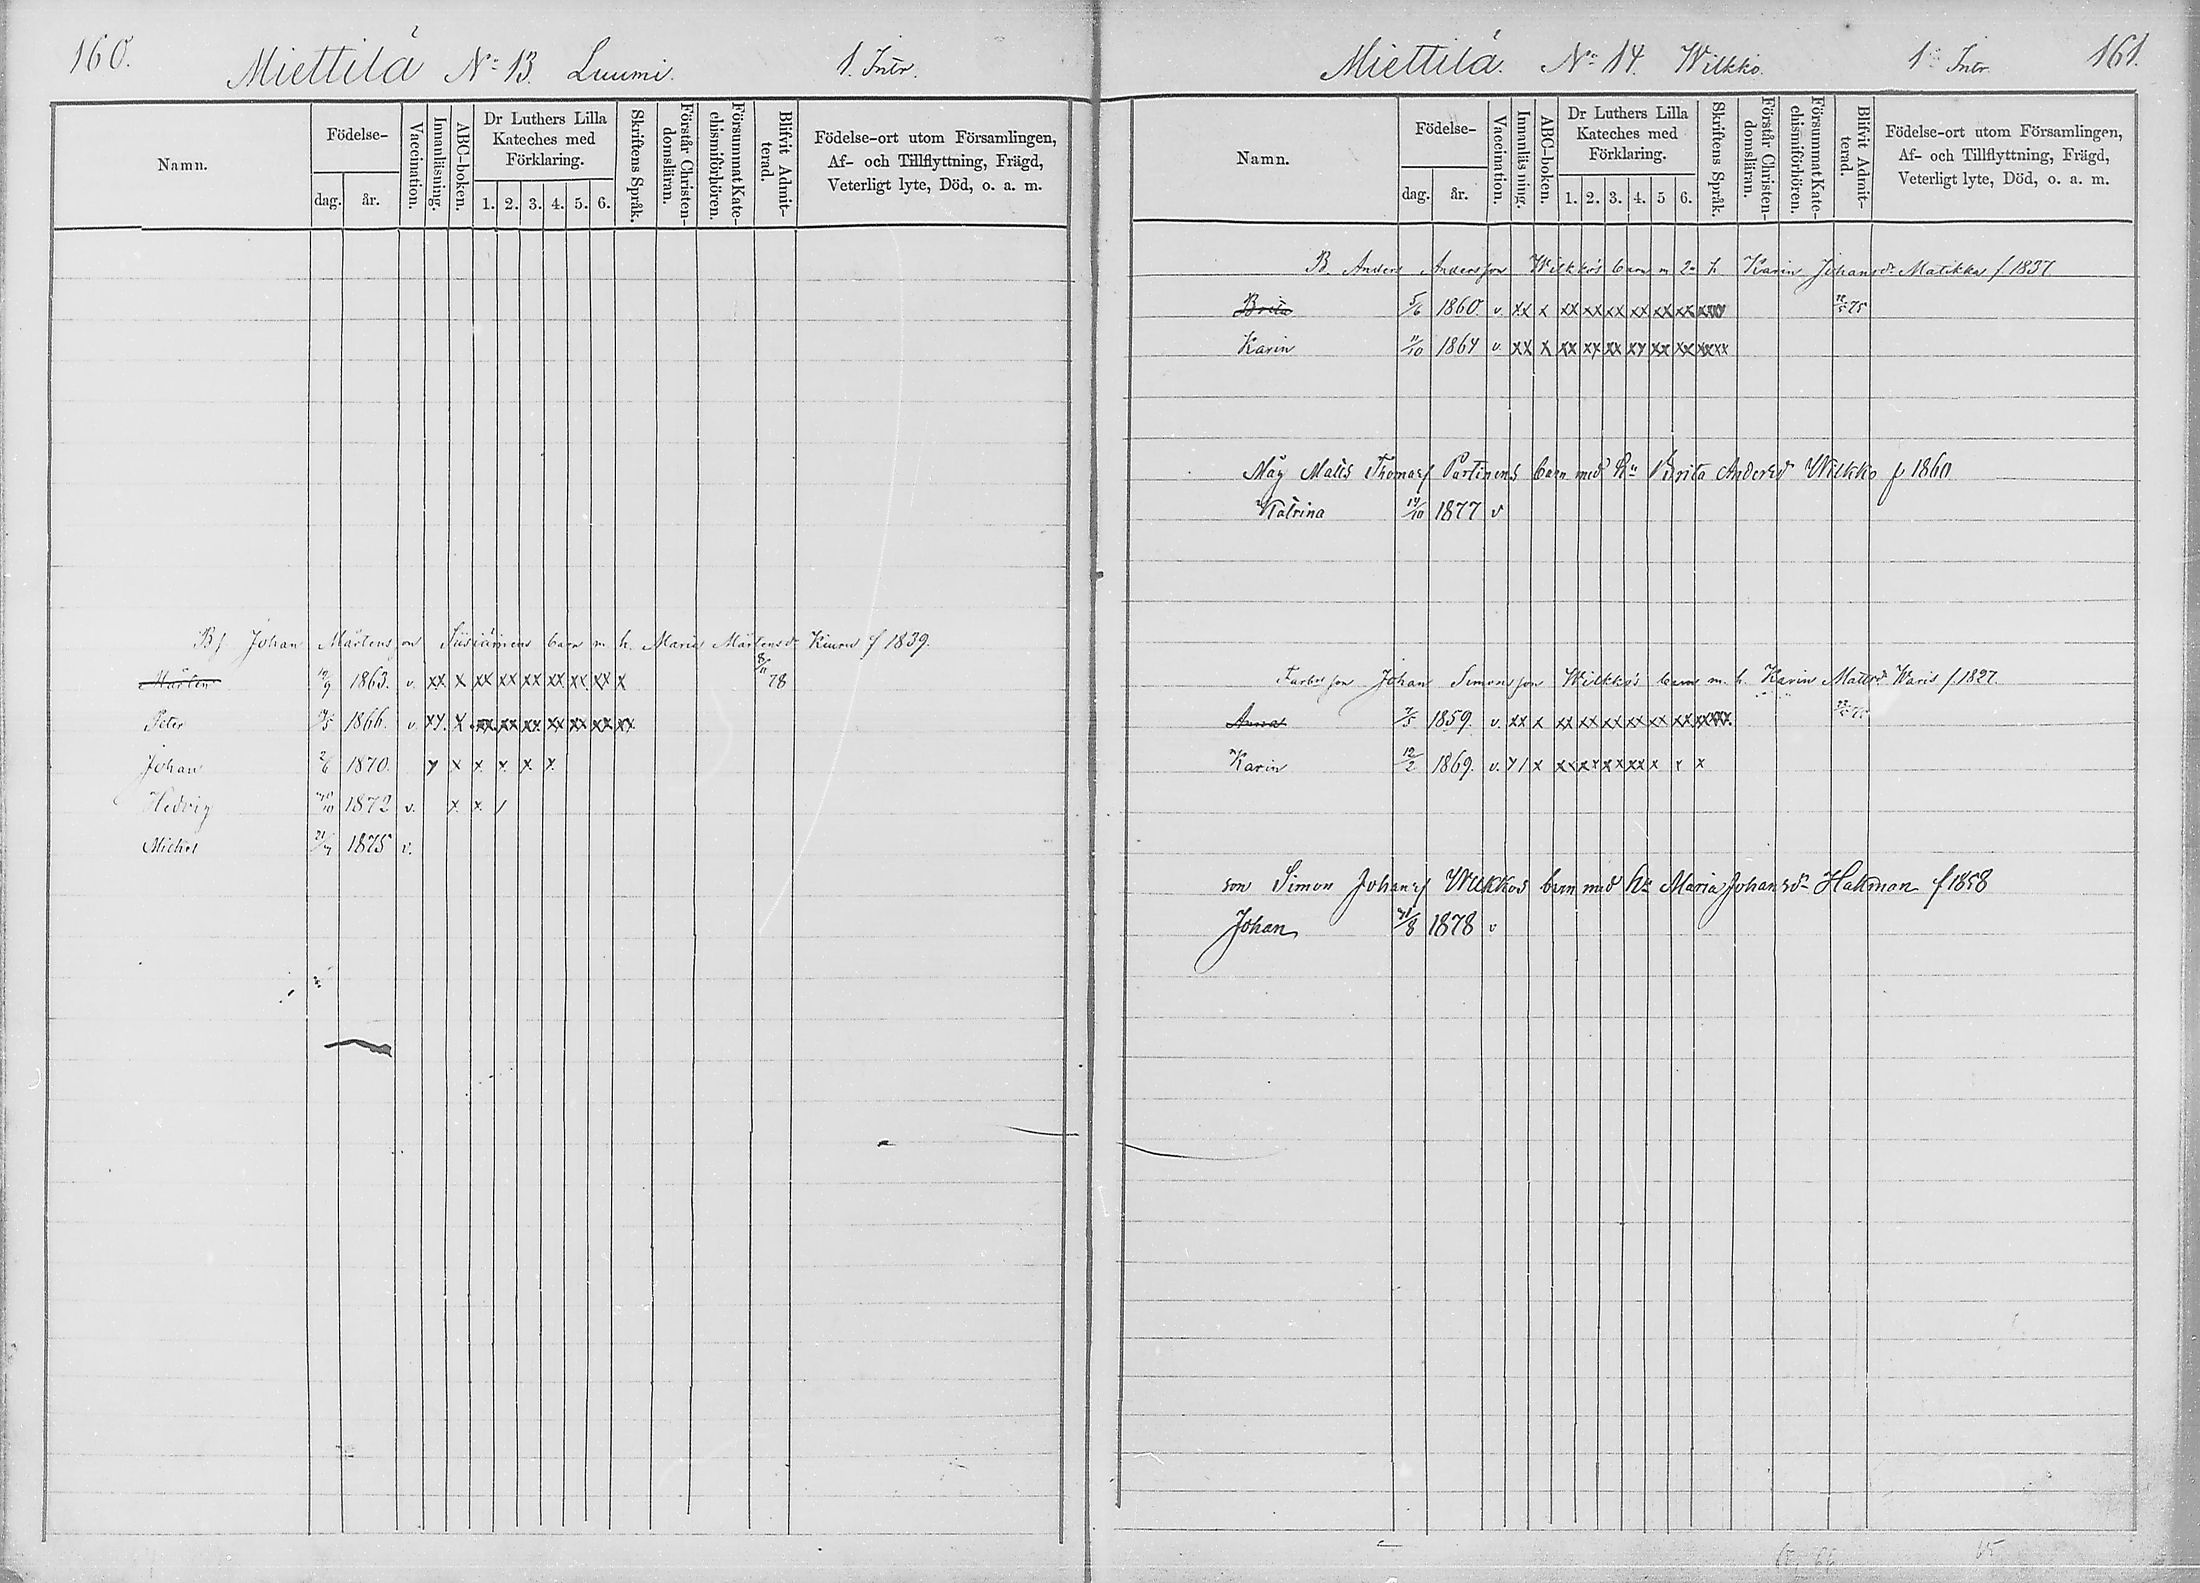 160.
Miettilä No 13. Luumi. 1. Intr.
Namn.
Födelse-
dag. år.
Vaccination.
Innanläsning.
ABC-boken.
Dr Luthers Lilla Kateches med Förklaring.
1. 2. 3. 4. 5. 6.
Skriftens Språk.
Förstår Christen-domsläran.
Försummat Kate-chismiförhören.
Blifvit Admit-terad.
Födelse-ort utom Församlingen, Af- och Tillflyttning, Frägd, Veterligt lyte, Död, o. a. m.
Bf. Johan Mårtensson barn m. h. Maria Mårtensd. f 1839.
Mårten 1863. v. xx x xx xx xx xx xx xx x 78
Peter 1866. v. xx x xx xx xx xx xx xx xx
Johan 2/6 1870. x x x x x x
Hedvig 1872 v. x x /
Michel 1875 v.
Miettilä. No 14. Wilkko. 1. Intr. 161.
Namn.
Födelse-
dag. år.
Vaccination.
Innanläsning.
ABC-boken.
Dr Luthers Lilla Kateches med Förklaring.
1. 2. 3. 4. 5 6.
Skriftens Språk.
Förstår Christen-domsläran.
Försummat Kate-chismiförhören.
Blifvit Admit-terad.
Födelse-ort utom Församlingen, Af- och Tillflyttning, Frägd, Veterligt lyte, Död, o. a. m.
B. Anders Andersson Wilkko's barn m 2a h Karin Johansdr Matikka f 1837
Brita 5/6 1860 v. xx x xx xx xx xx xx xx xxxx 75
Karin 11/10 1864 v. xx x xx xx xx xx xx xx xxxx
Måg Matts Thomasf Partinens barn med hu Brita Andersd Wilkko f 1860
Katrina 14/10 1877 v
Farbr son Johan Simonsson Wilkko's barn m. h. Karin Mattsdr Waris f 1827
Anna 7/5 1859. v. xx x xx xx xx xx xx xx xxxx
Karin 12/2 1869. v. x/ x xx xx xx xx x x x
son Simon Johansf Wilkkos barn med hu Maria Johansdr Hakman f 1858
Johan 1878 v